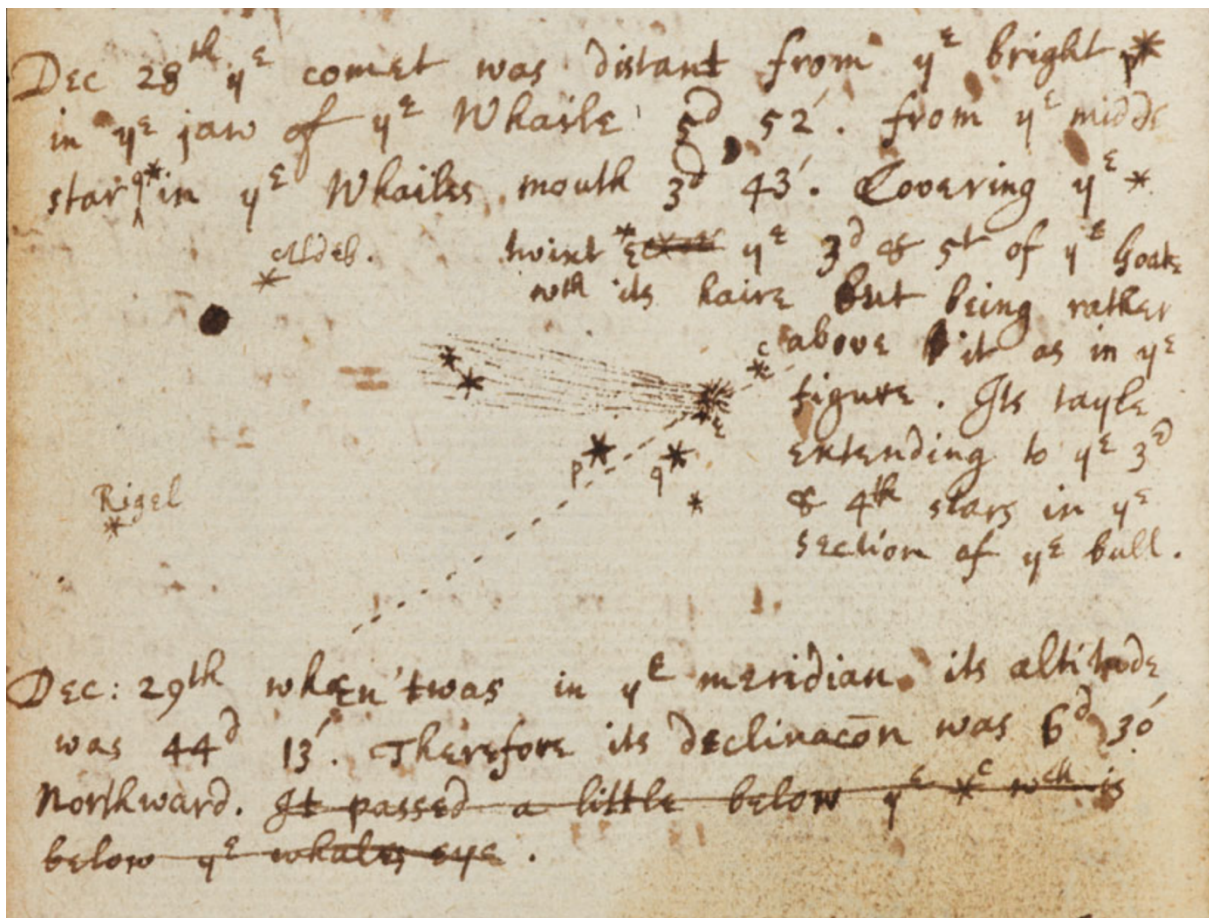 Dec 28th yᵉ comet was distant from yᵉ bright p*
in yᵉ jaw of yᵉ Whaile 5ᵈ, 52′. from yᵉ midds
star q* in yᵉ Whailes mouth 3ᵈ 43′. Covering yᵉ *
Aldeb.
twixt *ε yᵉ 3ᵈ & 5t of yᵉ Goate
wth its haire but being rather
above it as in yᵉ
c
figure. Its tayle
ε
extending to yᵉ 3ᵈ
p q
Rigel
& 4th stars in yᵉ
section of yᵉ bull.
Dec: 29th when 'twas in yᵉ meridian its altitude
was 44ᵈ 13′. Therefore its declinacōn was 6ᵈ 30′
Northward. It passed a little below yᵉ *ᶜ wch is
below yᵉ whales eye.